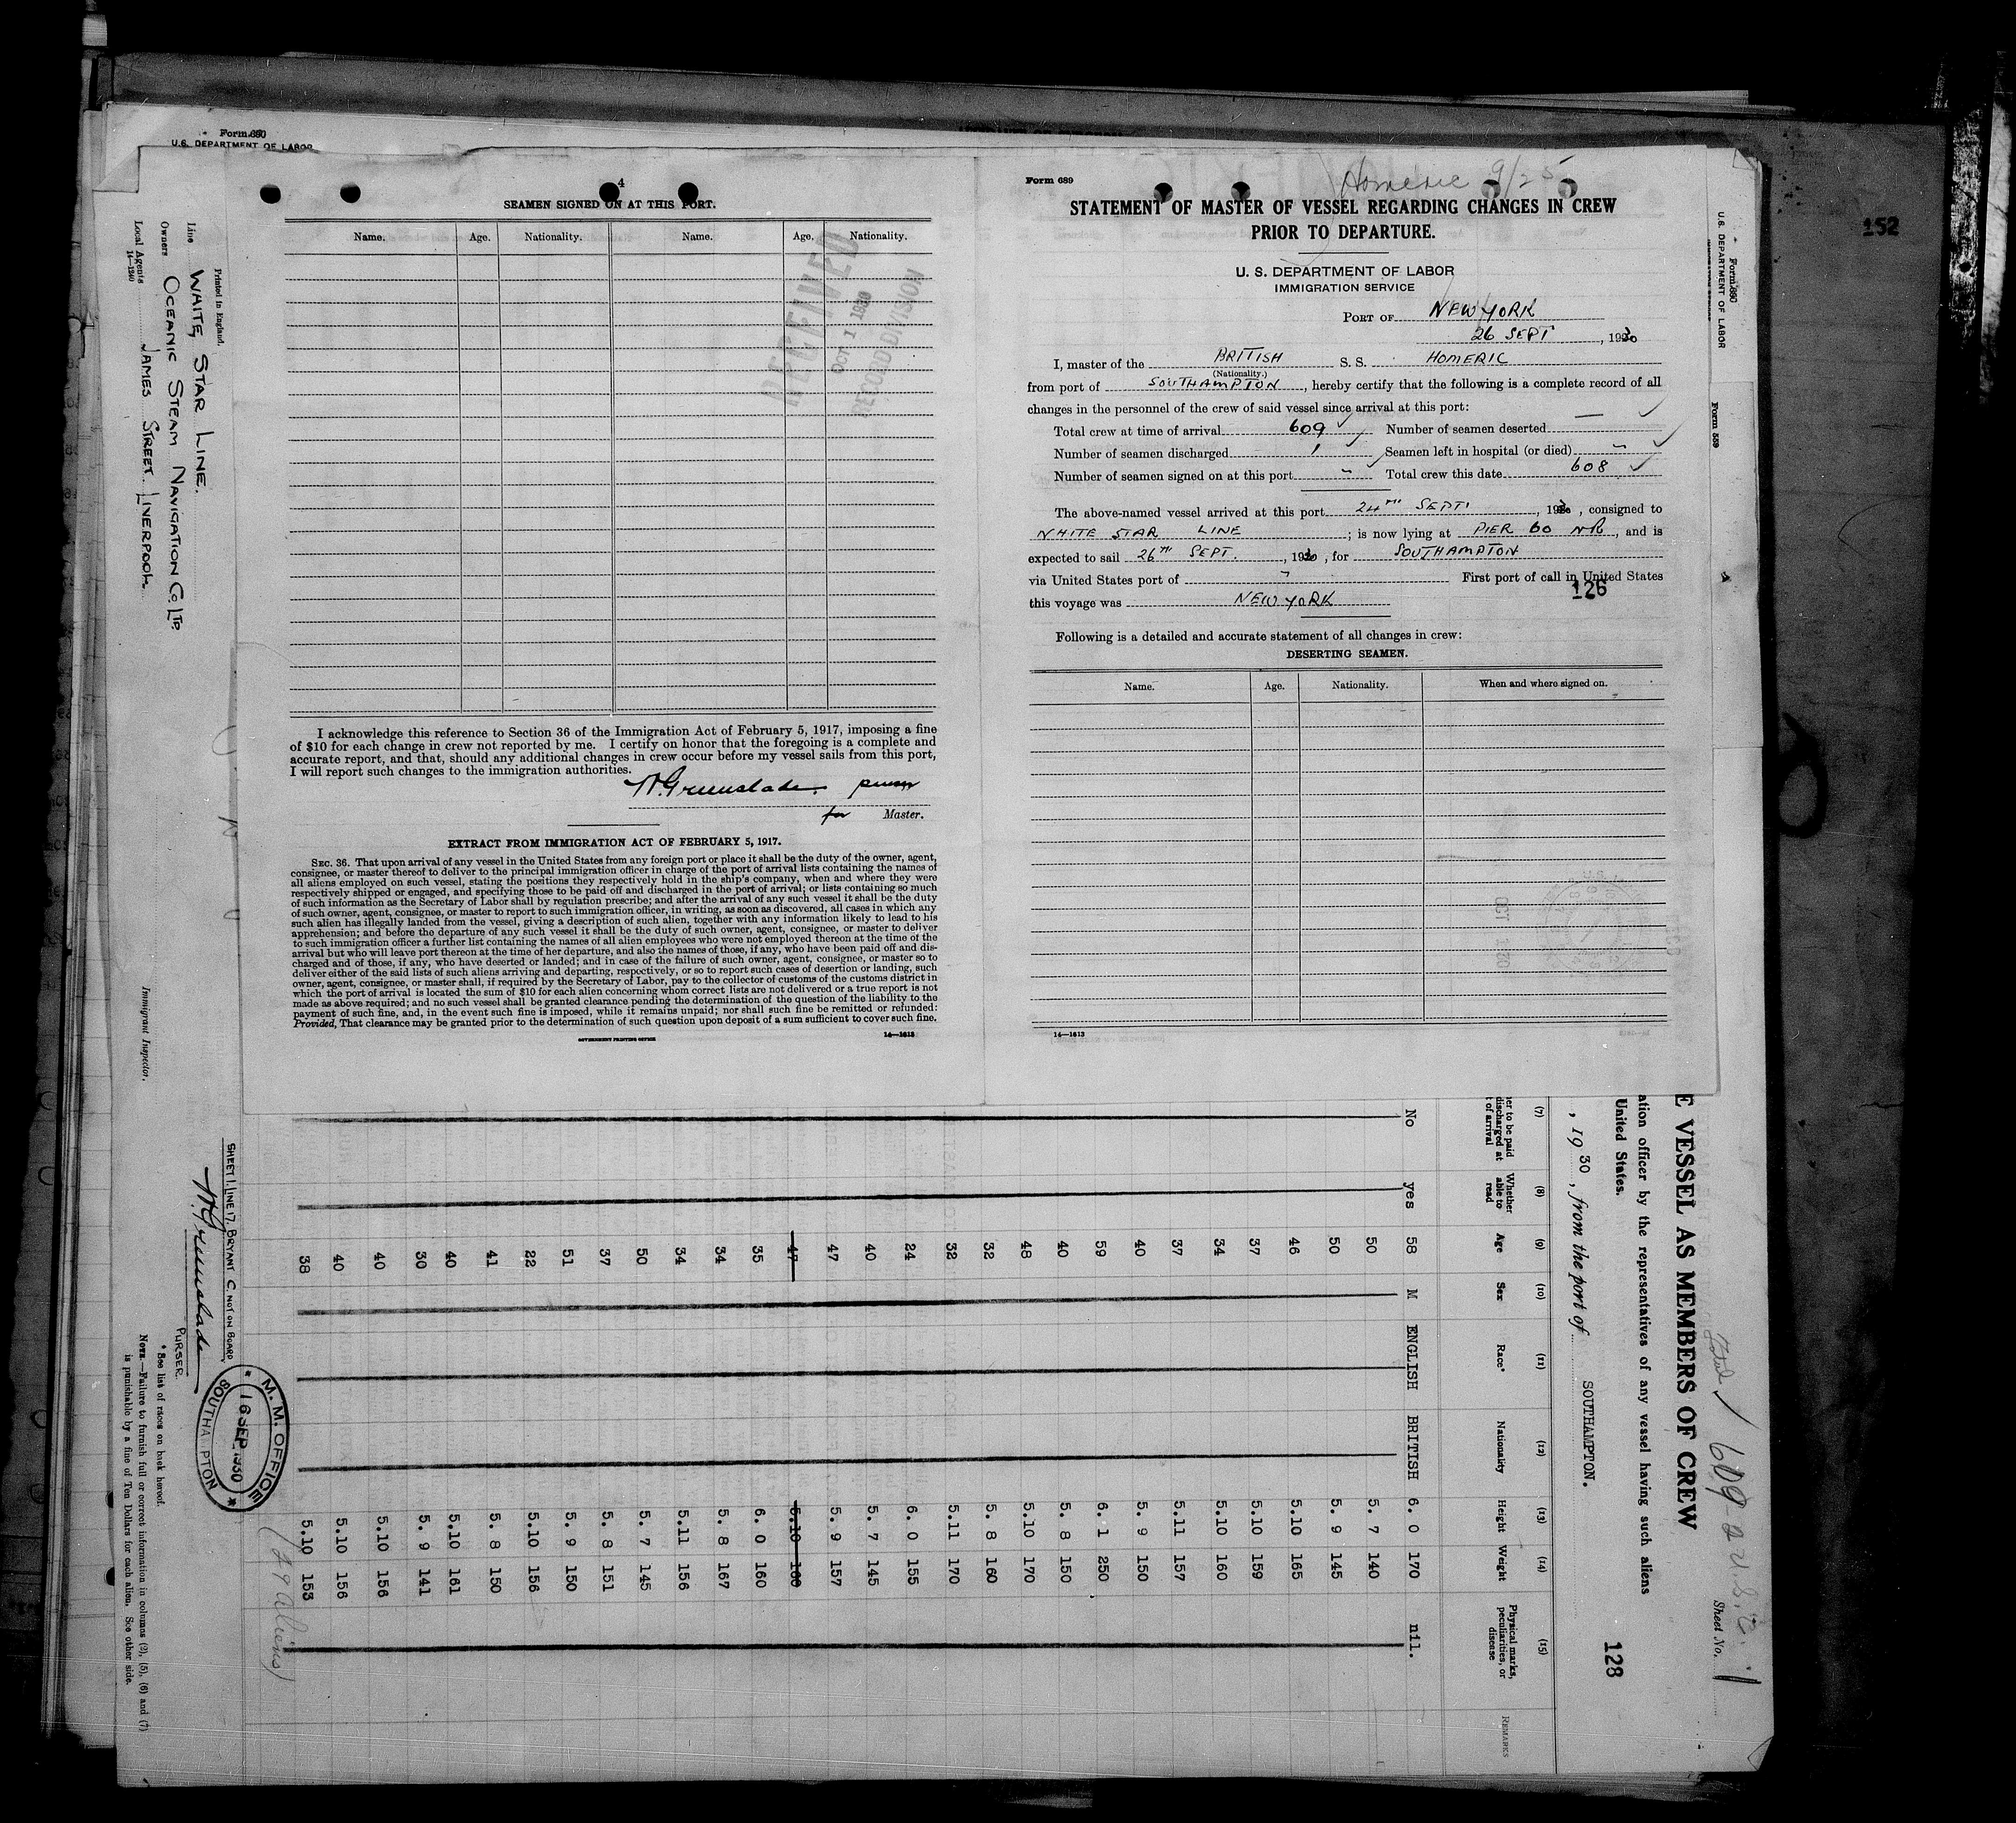 Form 690
U.S. DEPARTMENT OF LABOR
4
SEAMEN SIGNED ON AT THIS PORT.
Name. Age. Nationality. Name. Age. Nationality.
RECEIVED
OCT 1 1930
RECORD DIVISION
I acknowledge this reference to Section 36 of the Immigration Act of February 5, 1917, imposing a fine
of $10 for each change in crew not reported by me. I certify on honor that the foregoing is a complete and
accurate report, and that, should any additional changes in crew occur before my vessel sails from this port,
I will report such changes to the immigration authorities.
W. Greenslade. purser
for Master.
EXTRACT FROM IMMIGRATION ACT OF FEBRUARY 5, 1917.
SEC. 36. That upon arrival of any vessel in the United States from any foreign port or place it shall be the duty of the owner, agent,
consignee, or master thereof to deliver to the principal immigration officer in charge of the port of arrival lists containing the names of
all aliens employed on such vessel, stating the positions they respectively hold in the ship's company, when and where they were
respectively shipped or engaged, and specifying those to be paid off and discharged in the port of arrival; or lists containing so much
of such information as the Secretary of Labor shall by regulation prescribe; and after the arrival of any such vessel it shall be the duty
of such owner, agent, consignee, or master to report to such immigration officer, in writing, as soon as discovered, all cases in which any
such alien has illegally landed from the vessel, giving a description of such alien, together with any information likely to lead to his
apprehension; and before the departure of any such vessel it shall be the duty of such owner, agent, consignee, or master to deliver
to such immigration officer a further list containing the names of all alien employees who were not employed thereon at the time of the
arrival but who will leave port thereon at the time of her departure, and also the names of those, if any, who have been paid off and dis-
charged and of those, if any, who have deserted or landed; and in case of the failure of such owner, agent, consignee, or master so to
deliver either of the said lists of such aliens arriving and departing, respectively, or so to report such cases of desertion or landing, such
owner, agent, consignee, or master shall, if required by the Secretary of Labor, pay to the collector of customs of the customs district in
which the port of arrival is located the sum of $10 for each alien concerning whom correct lists are not delivered or a true report is not
made as above required; and no such vessel shall be granted clearance pending the determination of the question of the liability to the
payment of such fine, and, in the event such fine is imposed, while it remains unpaid; nor shall such fine be remitted or refunded:
Provided, That clearance may be granted prior to the determination of such question upon deposit of a sum sufficient to cover such fine.
GOVERNMENT PRINTING OFFICE 14—1613
Form 689
Homeric 9/25
STATEMENT OF MASTER OF VESSEL REGARDING CHANGES IN CREW
PRIOR TO DEPARTURE.
U. S. DEPARTMENT OF LABOR
IMMIGRATION SERVICE
PORT OF NEW YORK
26 SEPT, 1930
I, master of the BRITISH S. S. HOMERIC
(Nationality.)
from port of SOUTHAMPTON, hereby certify that the following is a complete record of all
changes in the personnel of the crew of said vessel since arrival at this port:
Total crew at time of arrival 609 Number of seamen deserted —
Number of seamen discharged 1 Seamen left in hospital (or died) -
Number of seamen signed on at this port - Total crew this date 608
The above-named vessel arrived at this port 24TH SEPT, 1930, consigned to
WHITE STAR LINE; is now lying at PIER 60 NR, and is
expected to sail 26TH SEPT., 1930, for SOUTHAMPTON
via United States port of - First port of call in United States
126
this voyage was NEW YORK
Following is a detailed and accurate statement of all changes in crew:
DESERTING SEAMEN.
Name. Age. Nationality. When and where signed on.
14—1613
152
Form 690
U.S. DEPARTMENT OF LABOR
Form 589
Printed in England.
Line WHITE STAR LINE.
Owners OCEANIC STEAM NAVIGATION CO. LTD.
Local Agents JAMES STREET. LIVERPOOL
14—1240
Immigrant Inspector.
Total 609 a U.S.C.
Sheet No. 1
E VESSEL AS MEMBERS OF CREW
ation officer by the representatives of any vessel having such aliens
United States.
128
, 1930, from the port of SOUTHAMPTON.
(7) (8) (9) (10) (11) (12) (13) (14) (15)
er to be paid discharged at t of arrival Whether able to read Age Sex Race* Nationality Height Weight Physical marks, peculiarities, or disease REMARKS
No yes 58 M ENGLISH BRITISH 6. 0 170 nil.
50 5. 7 140
50 5. 9 145
46 5.10 165
37 5.10 159
34 5.10 160
37 5.11 157
40 5. 9 150
59 6. 1 250
40 5. 8 150
48 5.10 170
32 5. 8 160
32 5.11 170
24 6. 0 155
40 5. 7 145
47 5. 9 157
47 5.10 160
35 6. 0 160
34 5. 8 167
34 5.11 156
50 5. 7 145
37 5. 8 151
51 5. 9 150
22 5.10 156
41 5. 8 150
40 5.10 161
30 5. 9 141
40 5.10 156
40 5.10 156
38 5.10 153
SHEET 1. LINE 17, BRYANT C. NOT ON BOARD
W. Greenslade
PURSER
M. M. OFFICE
16 SEP 1930
SOUTHA PTON
* See list of races on back hereof.
NOTE.—Failure to furnish full or correct information in columns (3), (5), (6) and (7)
is punishable by a fine of Ten Dollars for each alien. See other side.